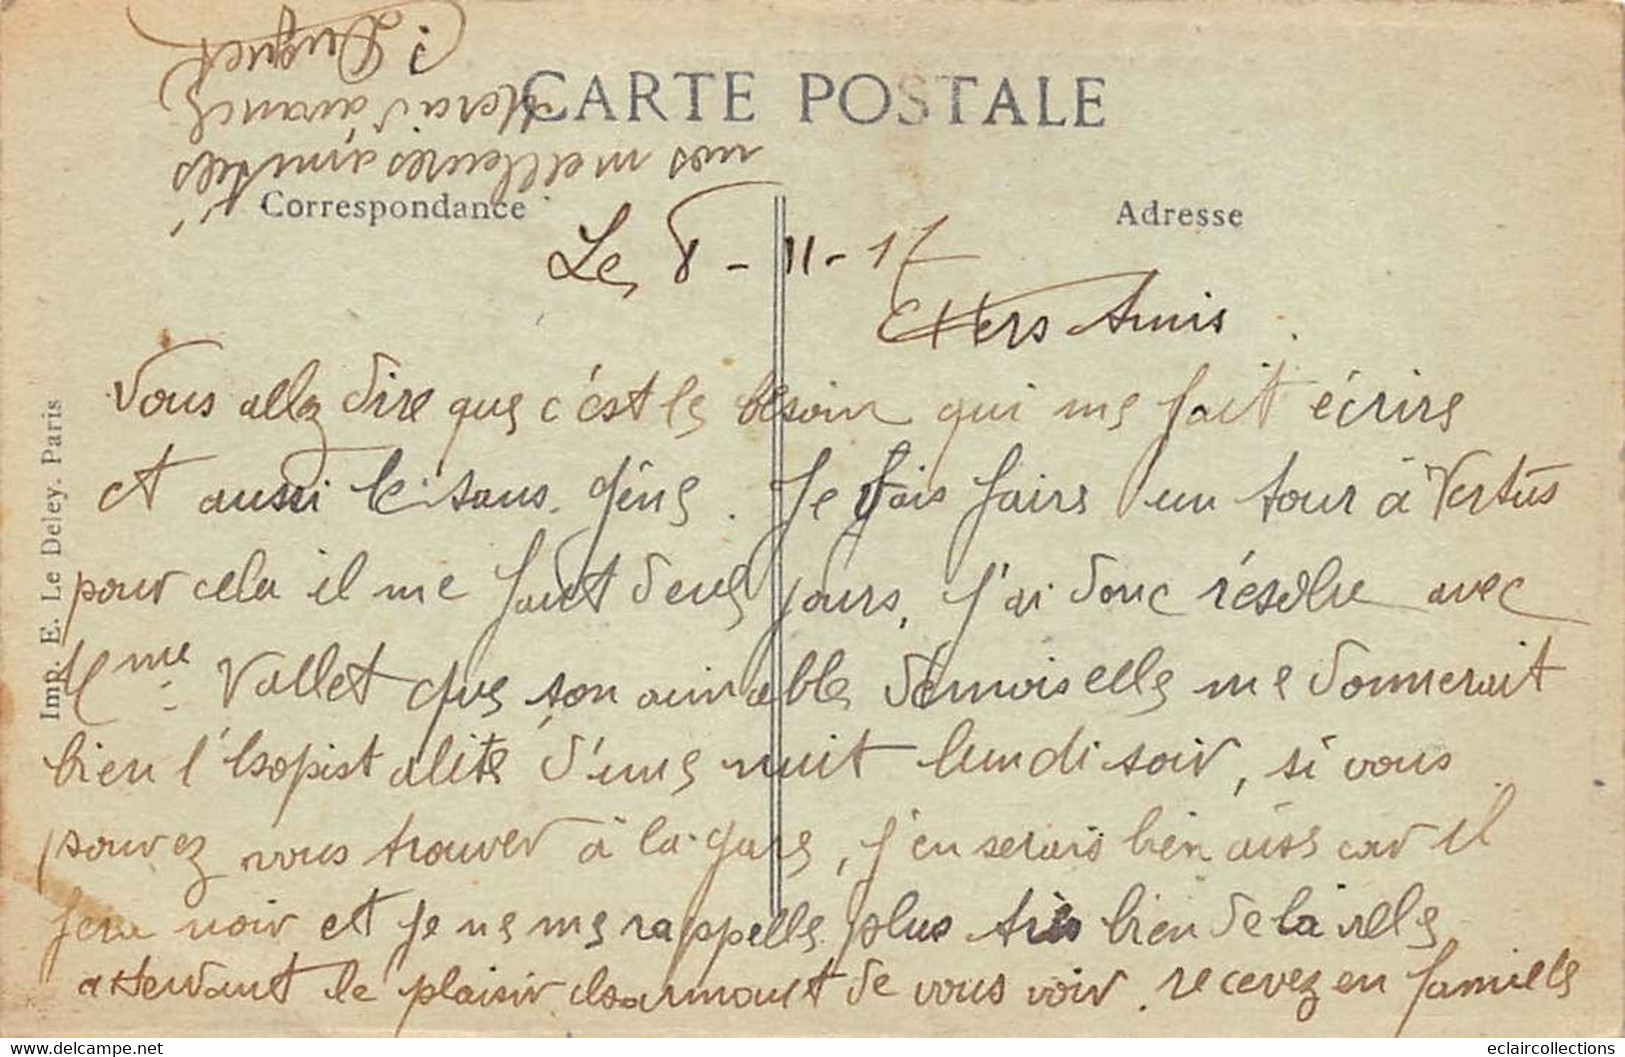 CARTE POSTALE
Correspondance
Adresse
Imp. E. Le Deley. Paris
Le 8 - 11 - 17
Chers Amis
Vous allez dire que c'est le besoin qui me fait écrire
et aussi le sans gêne. Je vais faire un tour à Vertus
pour cela il me faut deux jours, j'ai donc résolu avec
Mme Vallet que son aimable demoiselle me donnerait
bien l'hospitalité d'une nuit lundi soir, si vous
pouvez vous trouver à la gare, j'en serais bien aise car il
fera noir et je ne me rappelle plus très bien de la ville
attendant le plaisir charmant de vous voir. recevez en famille
nos meilleures amitiés
Merci d'avance
Duguet
eclaircollections
https://www.delcampe.net